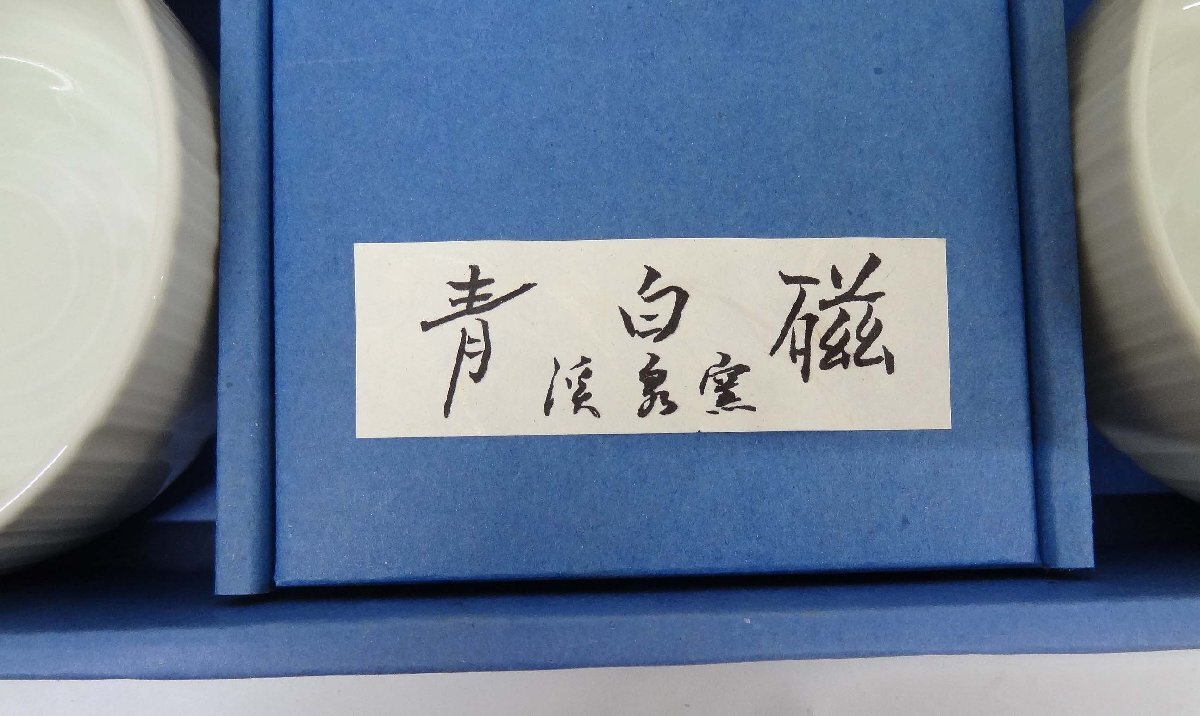 青白磁
渓泉窯